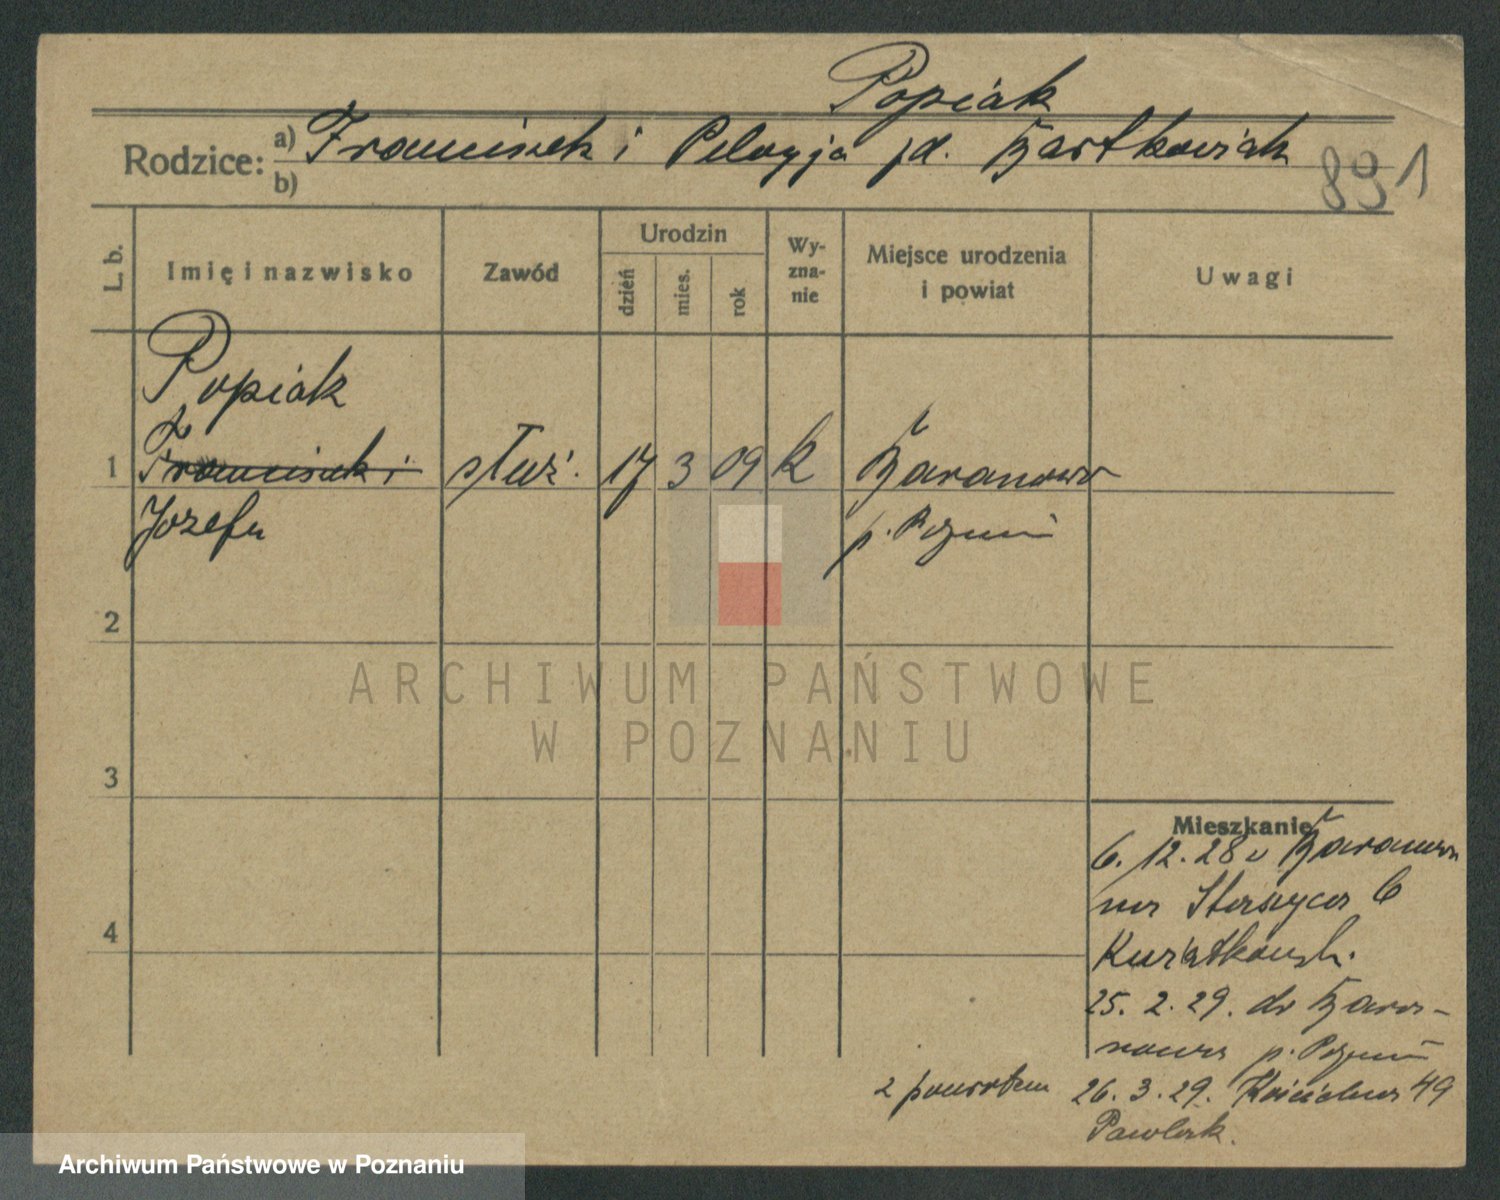 Popiak
Rodzice: a) Franciszek i Pelagja zd. Bartkowiak
b)
891
L. b. Imię i nazwisko Zawód Urodzin dzień mies. rok Wyzna-nie Miejsce urodzenia i powiat Uwagi
Popiak
1 Franciszek i służ. 17 3 09 k Baranowo
Józefa p. Poznań
2
ARCHIWUM PAŃSTWOWE
W POZNANIU
3
Mieszkanie
6. 12. 28 z Baranowa
na Staszyca 6
Kwiatkowsk.
4
25. 2. 29. do Bara-
nowa p. Poznań
z powrotem 26. 3. 29. Kościelna 49
Pawlak.
Archiwum Państwowe w Poznaniu